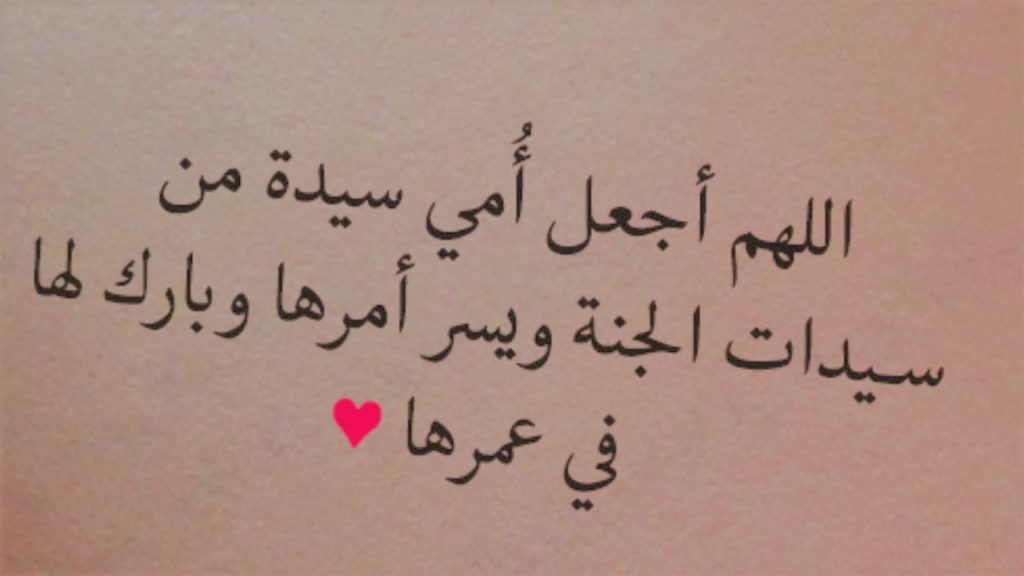 اللهم أجعل أُمي سيدة من
سيدات الجنة ويسر أمرها وبارك لها
في عمرها ♥